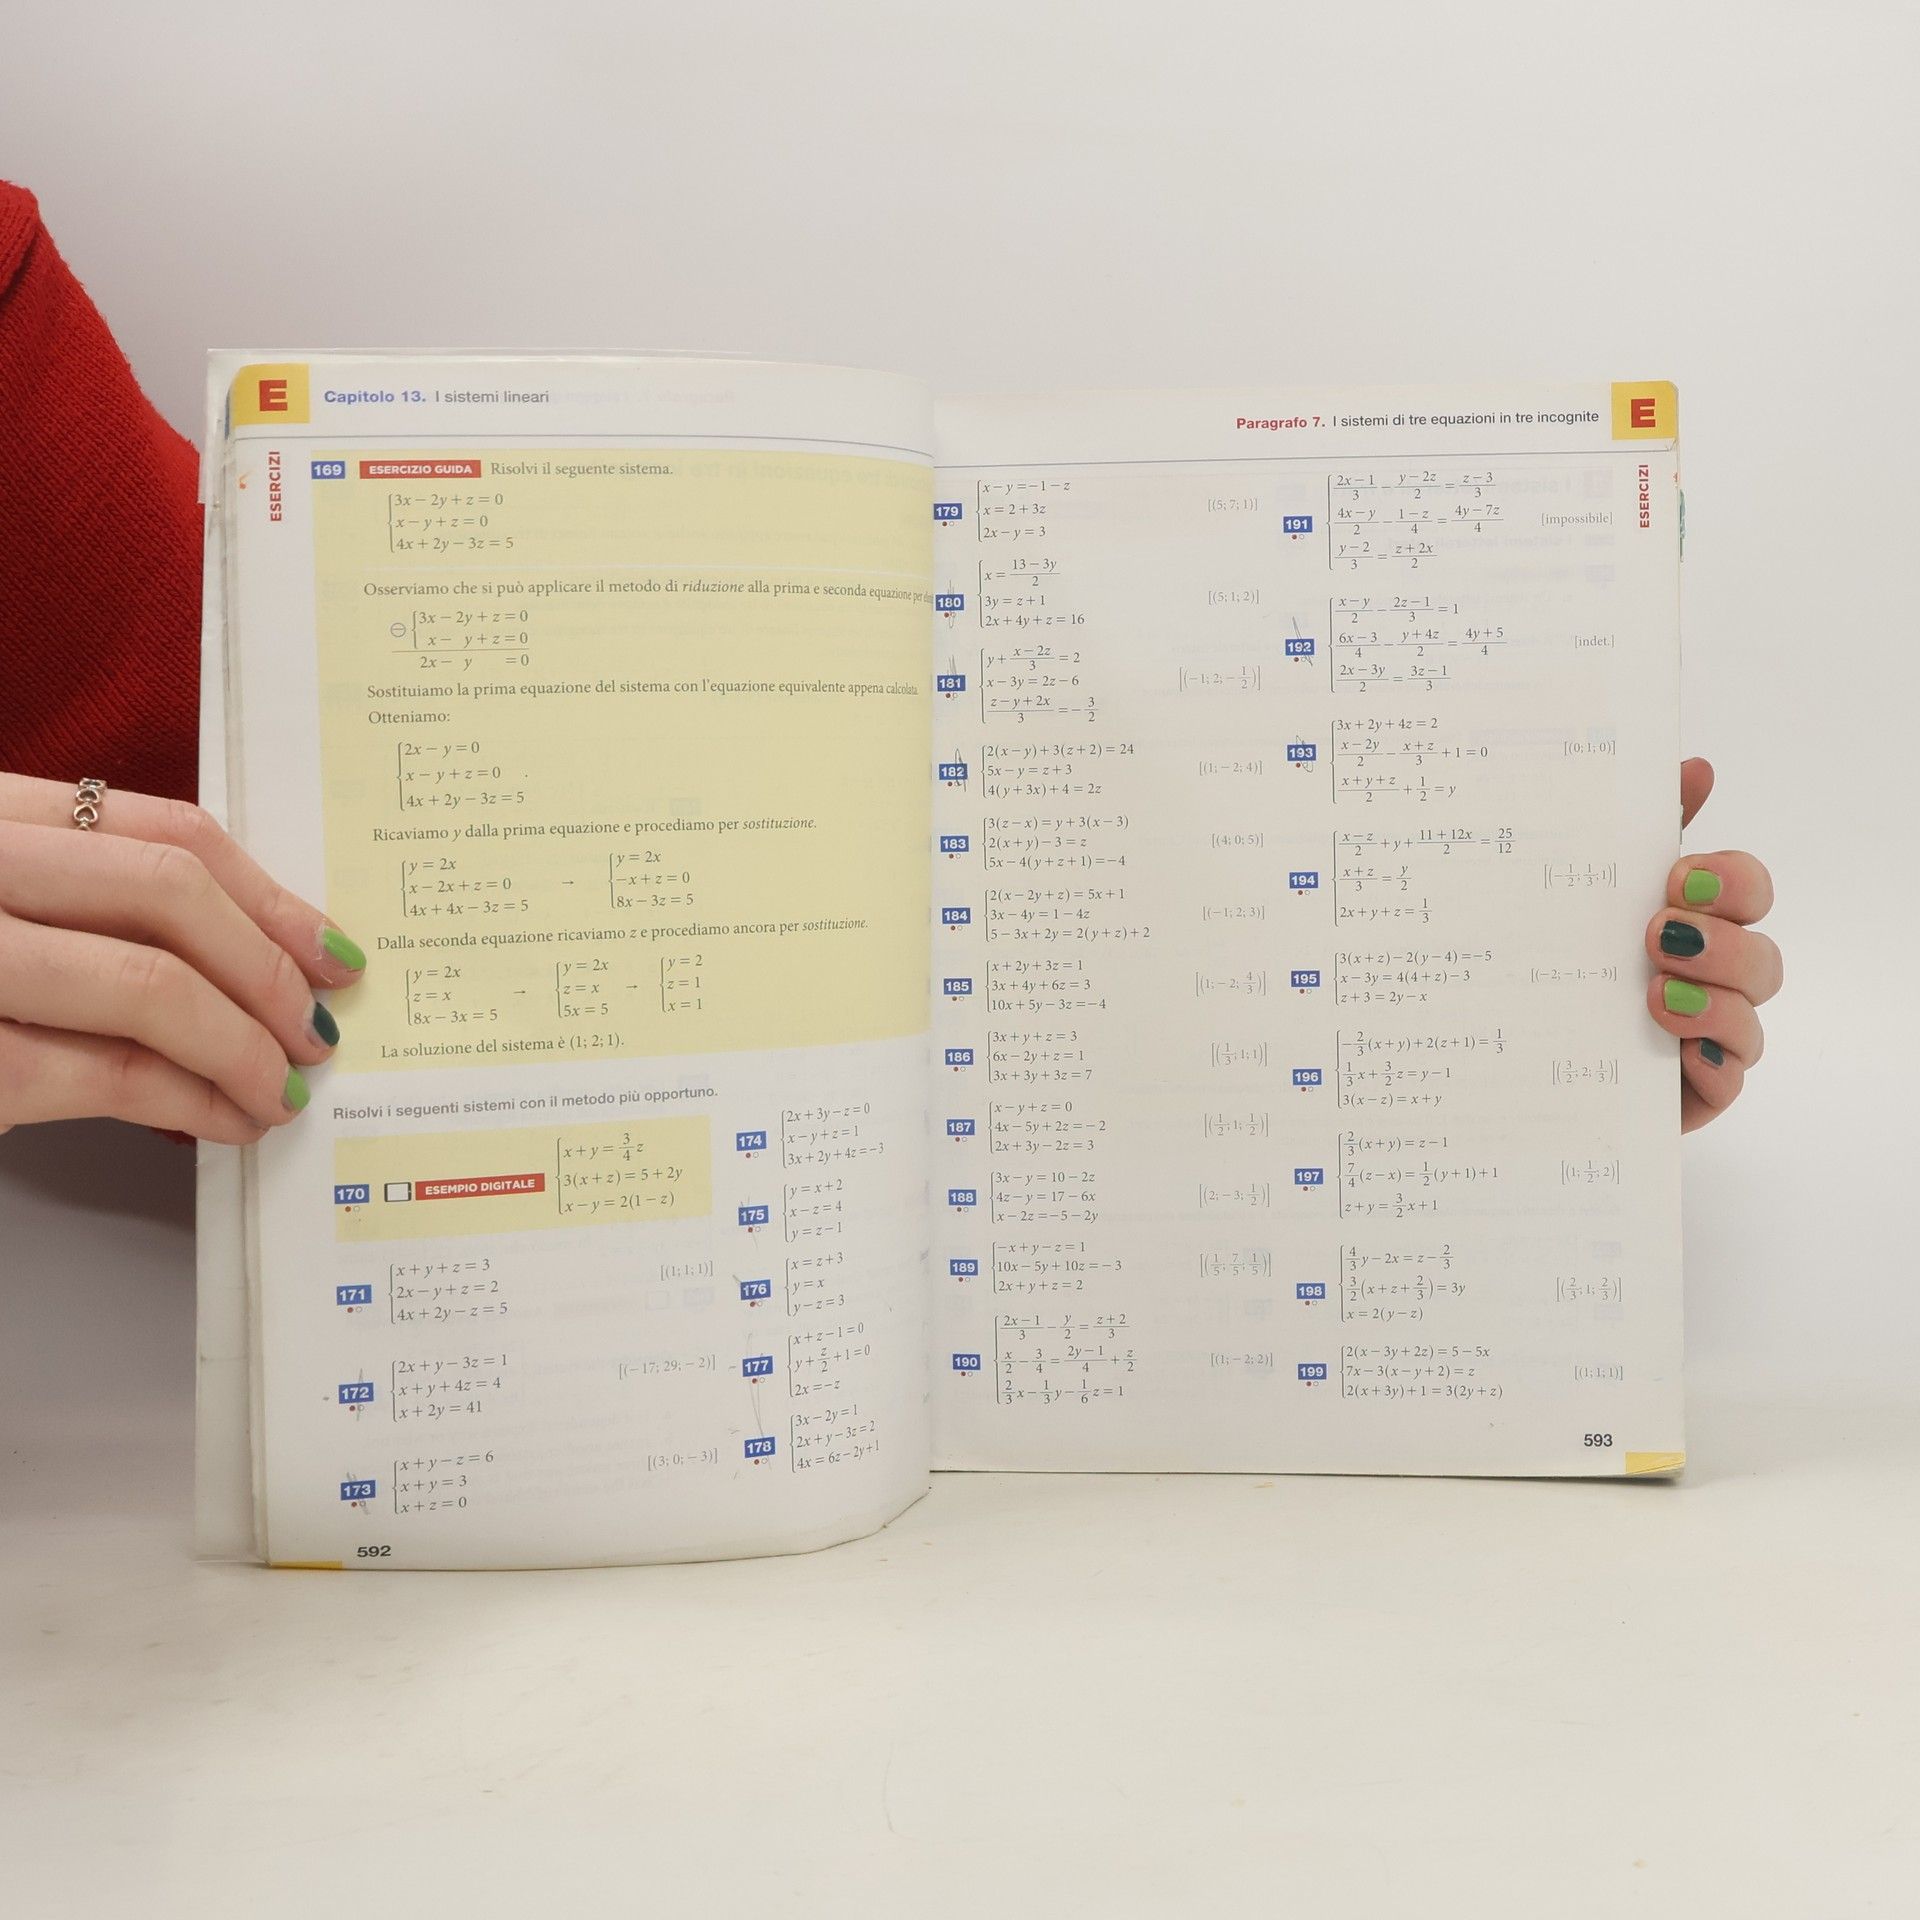 E
Capitolo 13. I sistemi lineari
ESERCIZI
169 ESERCIZIO GUIDA Risolvi il seguente sistema.
3x − 2y + z = 0
x − y + z = 0
4x + 2y − 3z = 5
Osserviamo che si può applicare il metodo di riduzione alla prima e seconda equazione per
⊖ 3x − 2y + z = 0
x − y + z = 0
2x − y = 0
Sostituiamo la prima equazione del sistema con l'equazione equivalente appena calcolata.
Otteniamo:
2x − y = 0
x − y + z = 0
4x + 2y − 3z = 5
Ricaviamo y dalla prima equazione e procediamo per sostituzione.
y = 2x y = 2x
x − 2x + z = 0 → −x + z = 0
4x + 4x − 3z = 5 8x − 3z = 5
Dalla seconda equazione ricaviamo z e procediamo ancora per sostituzione.
y = 2x y = 2x y = 2
z = x → z = x → z = 1
8x − 3x = 5 5x = 5 x = 1
La soluzione del sistema è (1; 2; 1).
Risolvi i seguenti sistemi con il metodo più opportuno.
170 ESEMPIO DIGITALE
x + y = 3/4 z
3(x + z) = 5 + 2y
x − y = 2(1 − z)
171
x + y + z = 3
2x − y + z = 2
4x + 2y − z = 5
[(1; 1; 1)]
172
2x + y − 3z = 1
x + y + 4z = 4
x + 2y = 41
[(−17; 29; −2)]
173
x + y − z = 6
x + y = 3
x + z = 0
[(3; 0; −3)]
174
2x + 3y − z = 0
x − y + z = 1
3x + 2y + 4z = −3
175
y = x + 2
x − z = 4
y = z − 1
176
x = z + 3
y = x
y − z = 3
177
x + z − 1 = 0
y + z/2 + 1 = 0
2x = −z
178
3x − 2y = 1
2x + y − 3z = 2
4x = 6z − 2y + 1
592
Paragrafo 7. I sistemi di tre equazioni in tre incognite
E
ESERCIZI
179
x − y = −1 − z
x = 2 + 3z
2x − y = 3
[(5; 7; 1)]
180
x = (13 − 3y)/2
3y = z + 1
2x + 4y + z = 16
[(5; 1; 2)]
181
y + (x − 2z)/3 = 2
x − 3y = 2z − 6
(z − y + 2x)/3 = −3/2
[(−1; 2; −1/2)]
182
2(x − y) + 3(z + 2) = 24
5x − y = z + 3
4(y + 3x) + 4 = 2z
[(1; −2; 4)]
183
3(z − x) = y + 3(x − 3)
2(x + y) − 3 = z
5x − 4(y + z + 1) = −4
[(4; 0; 5)]
184
2(x − 2y + z) = 5x + 1
3x − 4y = 1 − 4z
5 − 3x + 2y = 2(y + z) + 2
[(−1; 2; 3)]
185
x + 2y + 3z = 1
3x + 4y + 6z = 3
10x + 5y − 3z = −4
[(1; −2; 4/3)]
186
3x + y + z = 3
6x − 2y + z = 1
3x + 3y + 3z = 7
[(1/3; 1; 1)]
187
x − y + z = 0
4x − 5y + 2z = −2
2x + 3y − 2z = 3
[(1/2; 1; 1/2)]
188
3x − y = 10 − 2z
4z − y = 17 − 6x
x − 2z = −5 − 2y
[(2; −3; 1/2)]
189
−x + y − z = 1
10x − 5y + 10z = −3
2x + y + z = 2
[(1/5; 7/5; 1/5)]
190
(2x − 1)/3 − y/2 = (z + 2)/3
x/2 − 3/4 = (2y − 1)/4 + z/2
2/3 x − 1/3 y − 1/6 z = 1
[(1; −2; 2)]
191
(2x − 1)/3 − (y − 2z)/2 = (z − 3)/3
(4x − y)/2 − (1 − z)/4 = (4y − 7z)/4
(y − 2)/3 = (z + 2x)/2
[impossibile]
192
(x − y)/2 − (2z − 1)/3 = 1
(6x − 3)/4 − (y + 4z)/2 = (4y + 5)/4
(2x − 3y)/2 = (3z − 1)/3
[indet.]
193
3x + 2y + 4z = 2
(x − 2y)/2 − (x + z)/3 + 1 = 0
(x + y + z)/2 + 1/2 = y
[(0; 1; 0)]
194
(x − z)/2 + y + (11 + 12x)/2 = 25/12
(x + z)/3 = y/2
2x + y + z = 1/3
[(−1/2; 1/3; 1)]
195
3(x + z) − 2(y − 4) = −5
x − 3y = 4(4 + z) − 3
z + 3 = 2y − x
[(−2; −1; −3)]
196
−2/3 (x + y) + 2(z + 1) = 1/3
1/3 x + 3/2 z = y − 1
3(x − z) = x + y
[(3/2; 2; 1/3)]
197
2/3 (x + y) = z − 1
7/4 (z − x) = 1/2 (y + 1) + 1
z + y = 3/2 x + 1
[(1; 1/2; 2)]
198
4/3 y − 2x = z − 2/3
3/2 (x + z + 2/3) = 3y
x = 2(y − z)
[(2/3; 1; 2/3)]
199
2(x − 3y + 2z) = 5 − 5x
7x − 3(x − y + 2) = z
2(x + 3y) + 1 = 3(2y + z)
[(1; 1; 1)]
593